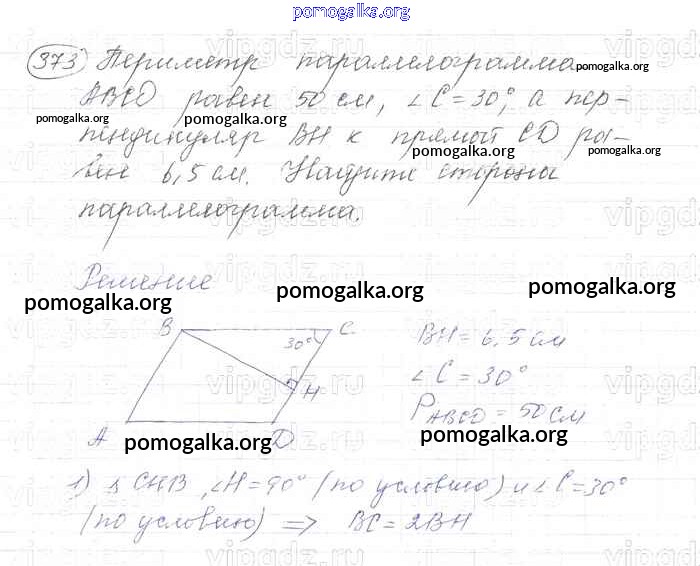 pomogalka.org
373 Периметр параллелограмма
pomogalka.org
ABCD равен 50 см, ∠C = 30°, а пер-
pomogalka.org pomogalka.org
пендикуляр BH к прямой CD ра-
pomogalka.org pomogalka.org
вен 6,5 см. Найдите стороны
параллелограмма.
vipgdz.ru
Решение
pomogalka.org pomogalka.org pomogalka.org
B C
30°
H
A D
BH = 6,5 см
∠C = 30°
P ABCD = 50 см
pomogalka.org pomogalka.org
1) Δ CHB, ∠H = 90° (по условию) и ∠C = 30°
(по условию) => BC = 2BH